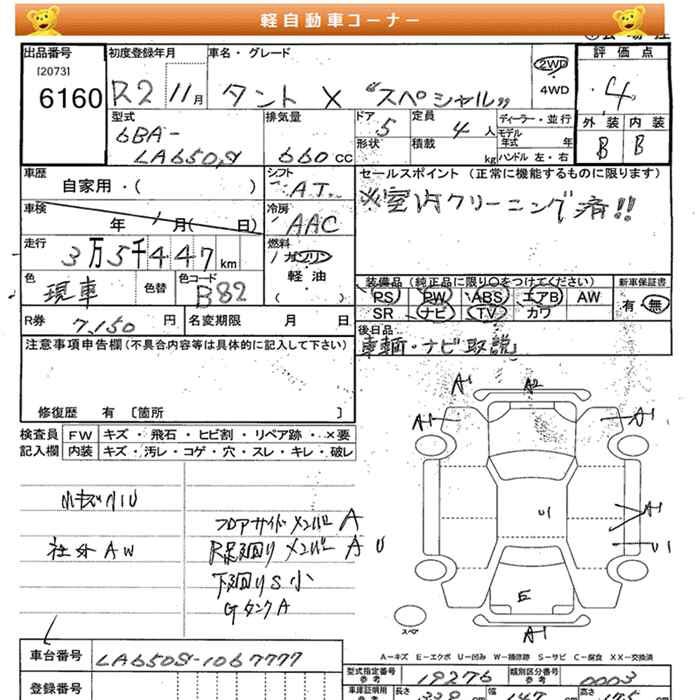 軽自動車コーナー
出品番号 初度登録年月 車名・グレード 2WD 評価点
[2073]
6160 R2 11月 タント X "スペシャル" 4WD 4
型式 排気量 ドア 定員 ディーラー・並行 外装 内装
6BA- 5 4人 モデル年式 年 B B
LA650S 660cc 形状 積載 kg ハンドル 左・右
車歴 シフト セールスポイント (正常に機能するものに限ります)
自家用・( ) A.T. ※室内クリーニング済!!
車検 年 月( 日) 冷房 AAC
走行 3万5千447km 燃料 ガソリン
軽・油
( )
色 現車 色替 色コード B82
装備品 (純正品に限り○をつけてください) 新車保証書
PS PW ABS エアB AW 有・無
SR ナビ TV カワ
R券 7,150円 名変期限 月 日 後日品
車輌・ナビ取説
注意事項申告欄(不具合内容等は具体的に記入して下さい)
修復歴 有 〔箇所 〕
検査員 FW キズ・飛石・ヒビ割・リペア跡・×要
記入欄 内装 キズ・汚レ・コゲ・穴・スレ・キレ・破レ
小キズ小U
社外AW
フロアサイドメンバー A
R足廻りメンバー A U
下廻りS小
GタンクA
A1 A2
A1 A1
U1 A1
U1
E
スペア
A-1
A=キズ E=エクボ U=凹み W=補修跡 S=サビ C=腐食 XX=交換済
車台番号 LA650S-1067777
型式指定番号 参考 19276 類別区分番号 参考 0003
登録番号
車庫証明用 参考 長さ 339 cm 幅 147 cm 高さ 175 cm